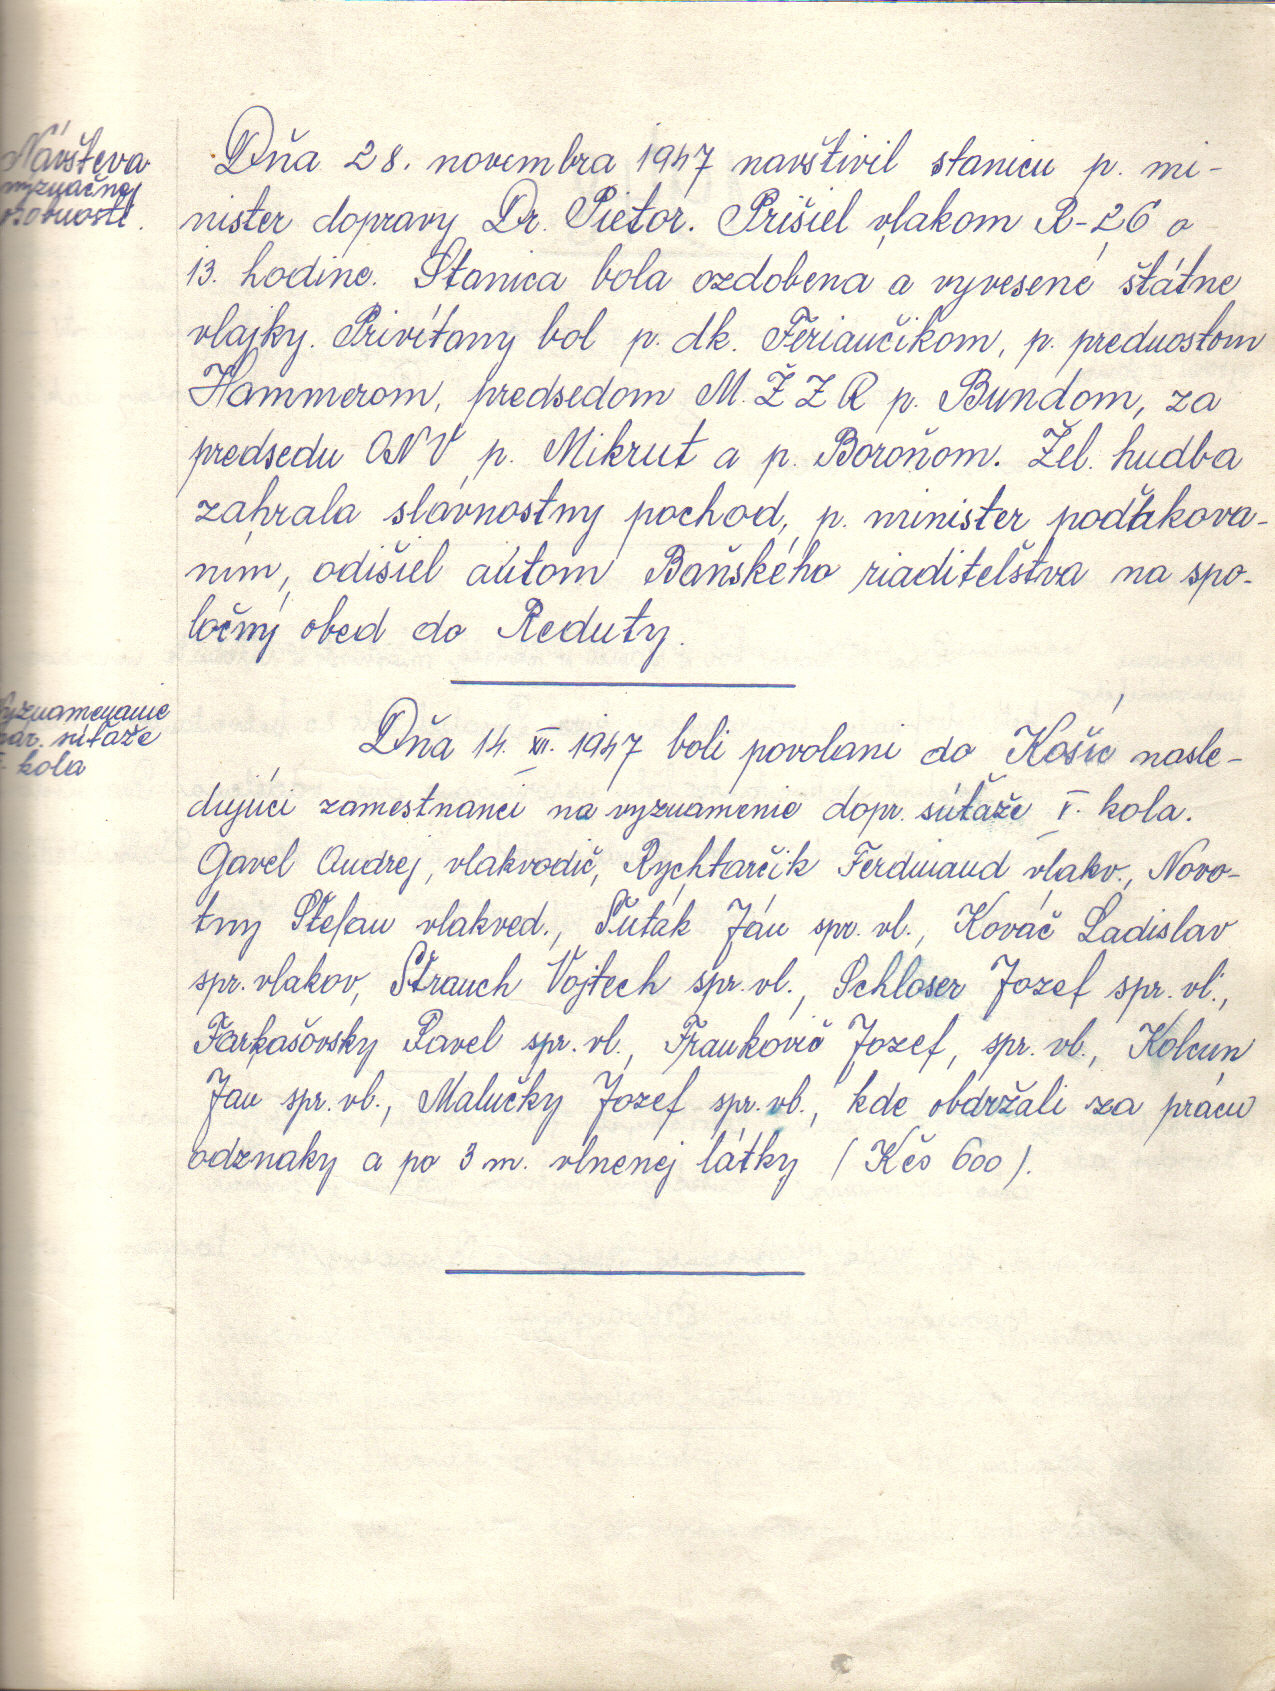 Návšteva
význačnej
osobnosti.
Dňa 28. novembra 1947 navštívil stanicu p. mi-
nister dopravy Dr. Pietor. Prišiel vlakom R-26 o
13. hodine. Stanica bola ozdobena a vyvesené štátne
vlajky. Privítaný bol p. dk. Feriančikom, p. prednostom
Hammerom, predsedom M. Ž Z R p. Bundom, za
predsedu ONV p. Mikrut a p. Boroňom. Žel. hudba
zahrala slávnostný pochod, p. minister poďakova-
ním, odišiel autom Baňského riaditeľstva na spo-
ločný obed do Reduty.
Vyznamenanie
súťaže
kola
Dňa 14. XII. 1947 boli povolaní do Košíc nasle-
dujúci zamestnanci na vyznamenie dopr. súťaže V. kola.
Gavel Andrej, vlakvodič, Rychtarčik Ferdinand vlakv., Novo-
tny Štefan vlakved., Šuták Ján spr. vl., Kováč Ladislav
spr. vlakov, Štrauch Vojtech spr. vl., Schloser Jozef spr. vl.,
Farkašovsky Pavel spr. vl., Frankovič Jozef, spr. vl., Kolcun
Jan spr. vl., Malučky Jozef spr. vl., kde obdržali za prácu
odznaky a po 3 m. vlnenej látky (Kčs 600).